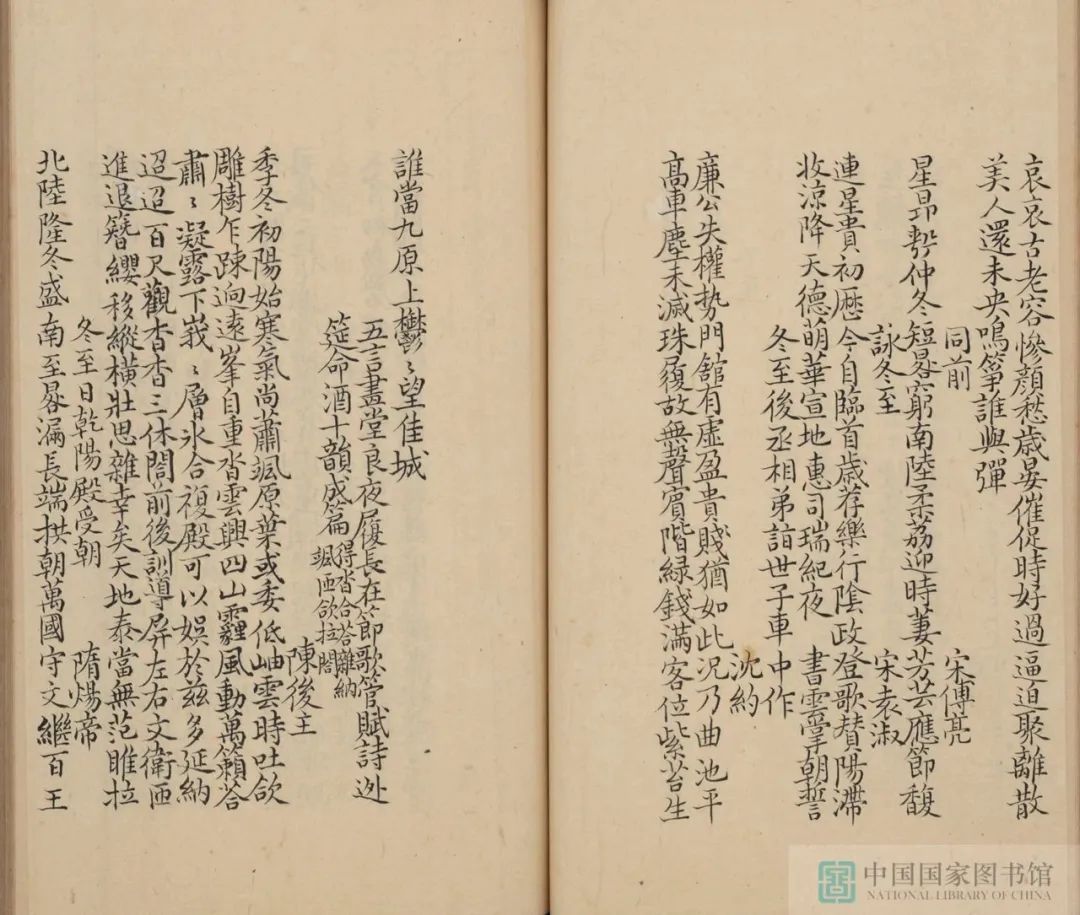 哀哀古老容慘顏愁歲晏催促時好過逼迫聚離散
美人還未央鳴箏誰與彈
同前 宋傅亮
星昴殷仲冬短晷窮南陸柔荔迎時萋芳芸應節馥
詠冬至 宋袁淑
連星貴初曆令自臨首歲荐樂行陰政登歌贊陽滯
收涼降天德萌華宣地惠司瑞紀夜 書雲掌朝誓
冬至後丞相弟詣世子車中作
沈約
廉公失權勢門館有虛盈貴賤猶如此況乃曲池平
高車塵未滅珠履故無聲賓階綠錢滿客位紫苔生
誰當九原上鬱〻望佳城
五言畫堂良夜履長在節歌管賦詩迾
筵命酒十韻成篇 得沓合答雜納
颯匝欱拉閤
陳後主
季冬初陽始寒氣尚蕭颯原葉或委低岫雲時吐欱
雕樹乍踈迥遠峯自重沓雲興四山霾風動萬籟荅
肅〻凝露下峩〻層冰合複殿可以娛於茲多延納
迢迢百尺觀杳杳三休閤前後訓導屏左右文衛匝
進退簪纓移縱橫壯思雜幸矣天地泰當無范睢拉
冬至日乾陽殿受朝 隋煬帝
北陸隆冬盛南至晷漏長端拱朝萬國守文繼百王
中国国家图书馆
NATIONAL LIBRARY OF CHINA